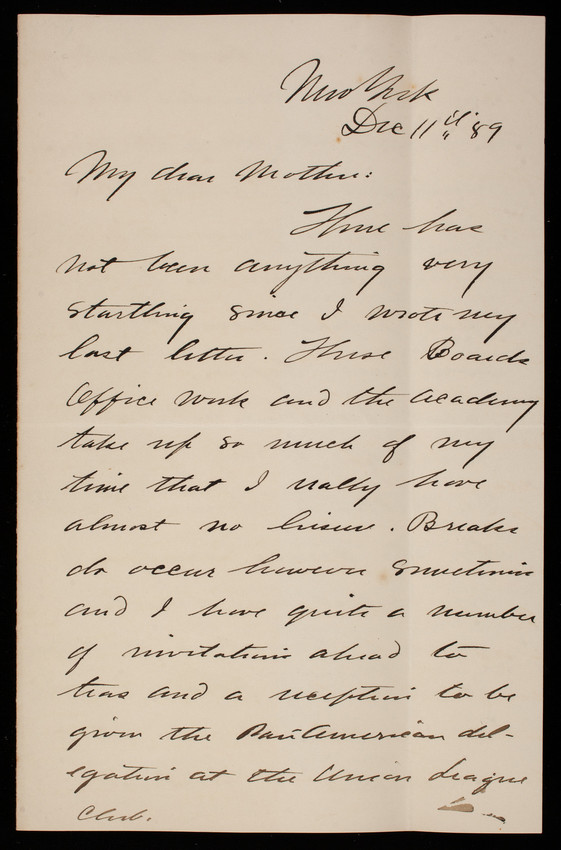 New York
Dec 11th "89
My dear Mother:
There has
not been anything very
startling since I wrote my
last letter. These Boards
Office work and the Academy
take up so much of my
time that I really have
almost no leisure. Breaks
do occur however sometimes
and I have quite a number
of invitations ahead to
teas and a reception to be
given the Pan American del-
egation at the Union League
Club.